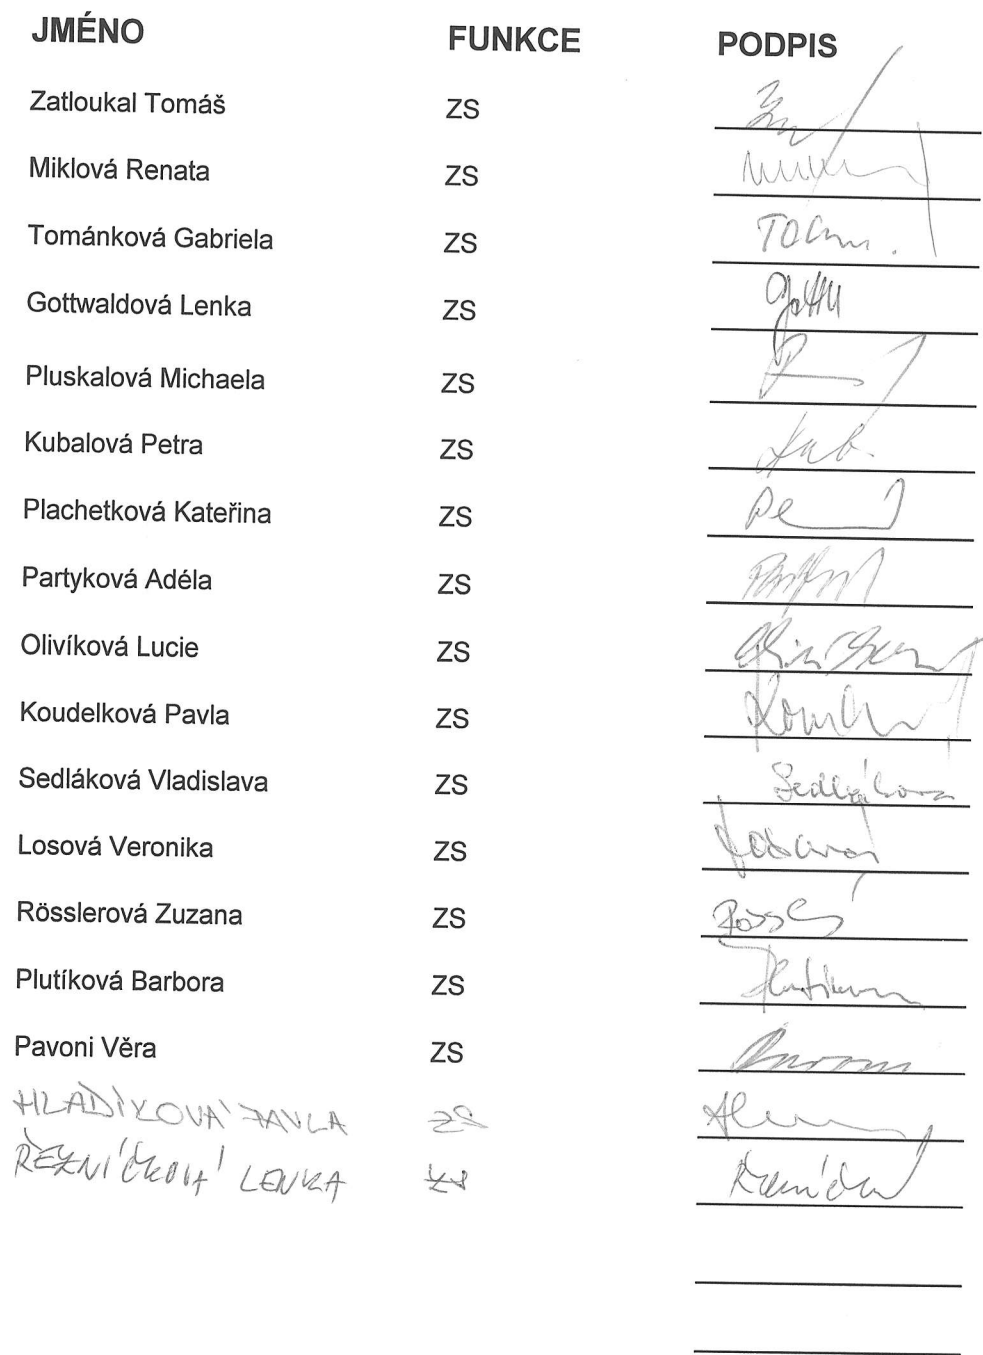 JMÉNO FUNKCE PODPIS
Zatloukal Tomáš ZS
Miklová Renata ZS
Tománková Gabriela ZS
Gottwaldová Lenka ZS
Pluskalová Michaela ZS
Kubalová Petra ZS Kub.
Plachetková Kateřina ZS
Partyková Adéla ZS
Olivíková Lucie ZS
Koudelková Pavla ZS
Sedláková Vladislava ZS Sedláková
Losová Veronika ZS Losová
Rösslerová Zuzana ZS
Plutíková Barbora ZS
Pavoni Věra ZS
HLADÍKOVÁ PAVLA ZS
ŘEZNÍČKOVÁ LENKA ZS